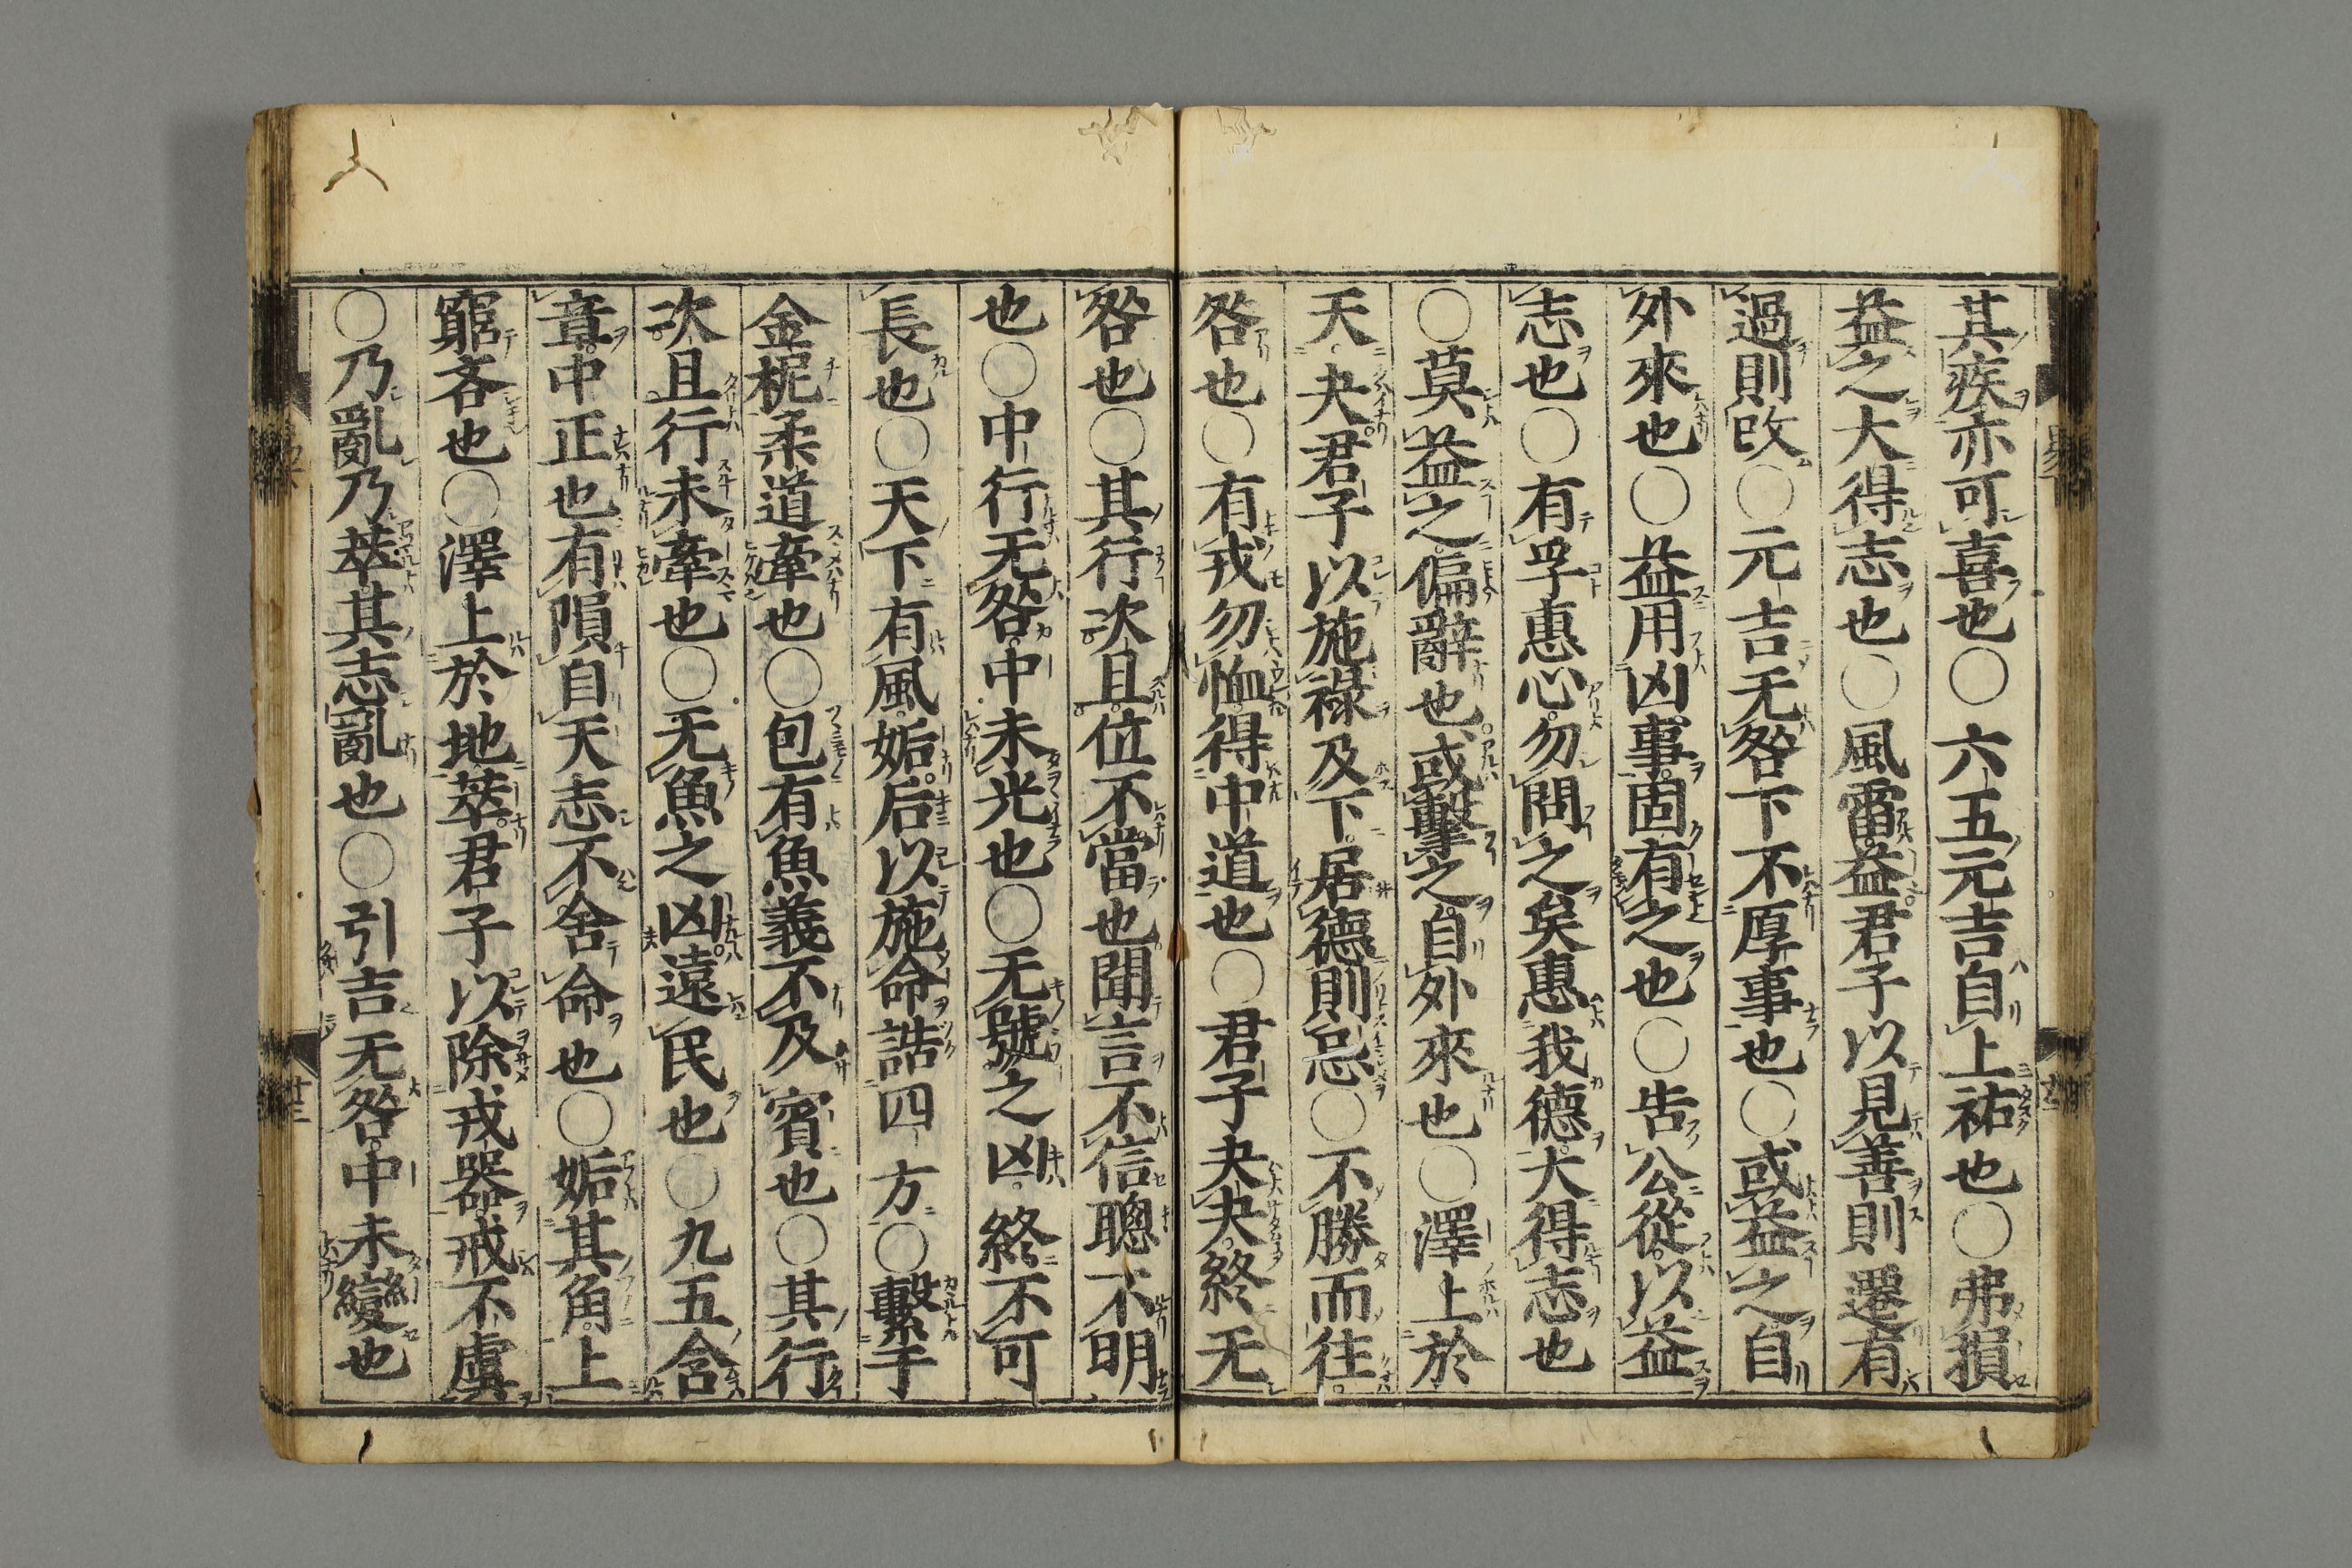 其疾亦可喜也○六五元吉自上祐也○弗損
益之大得志也○風雷益君子以見善則遷有
過則改○元吉无咎下不厚事也○或益之自
外來也○益用凶事固有之也○告公從以益
志也○有孚惠心勿問之矣惠我德大得志也
○莫益之偏辭也或擊之自外來也○澤上於
天夬君子以施祿及下居德則忌○不勝而往
咎也○有戎勿恤得中道也○君子夬夬終无
咎也○其行次且位不當也聞言不信聰不明
也○中行无咎中未光也○无號之凶終不可
長也○天下有風姤后以施命誥四方○繫于
金柅柔道牽也○包有魚義不及賓也○其行
次且行未牽也○无魚之凶遠民也○九五含
章中正也有隕自天志不舍命也○姤其角上
窮吝也○澤上於地萃君子以除戎器戒不虞
○乃亂乃萃其志亂也○引吉无咎中未變也